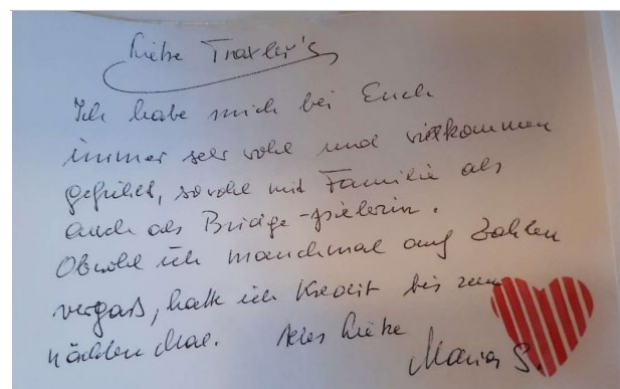 Liebe Traxler's
Ich habe mich bei Euch
immer sehr wohl und willkommen
gefühlt, sowohl mit Familie als
auch als Bridge-spielerin.
Obwohl ich manchmal auf Zahlen
vergaß, hatte ich Kredit bis zum
nächsten Mal. Alles Liebe
Maria S.